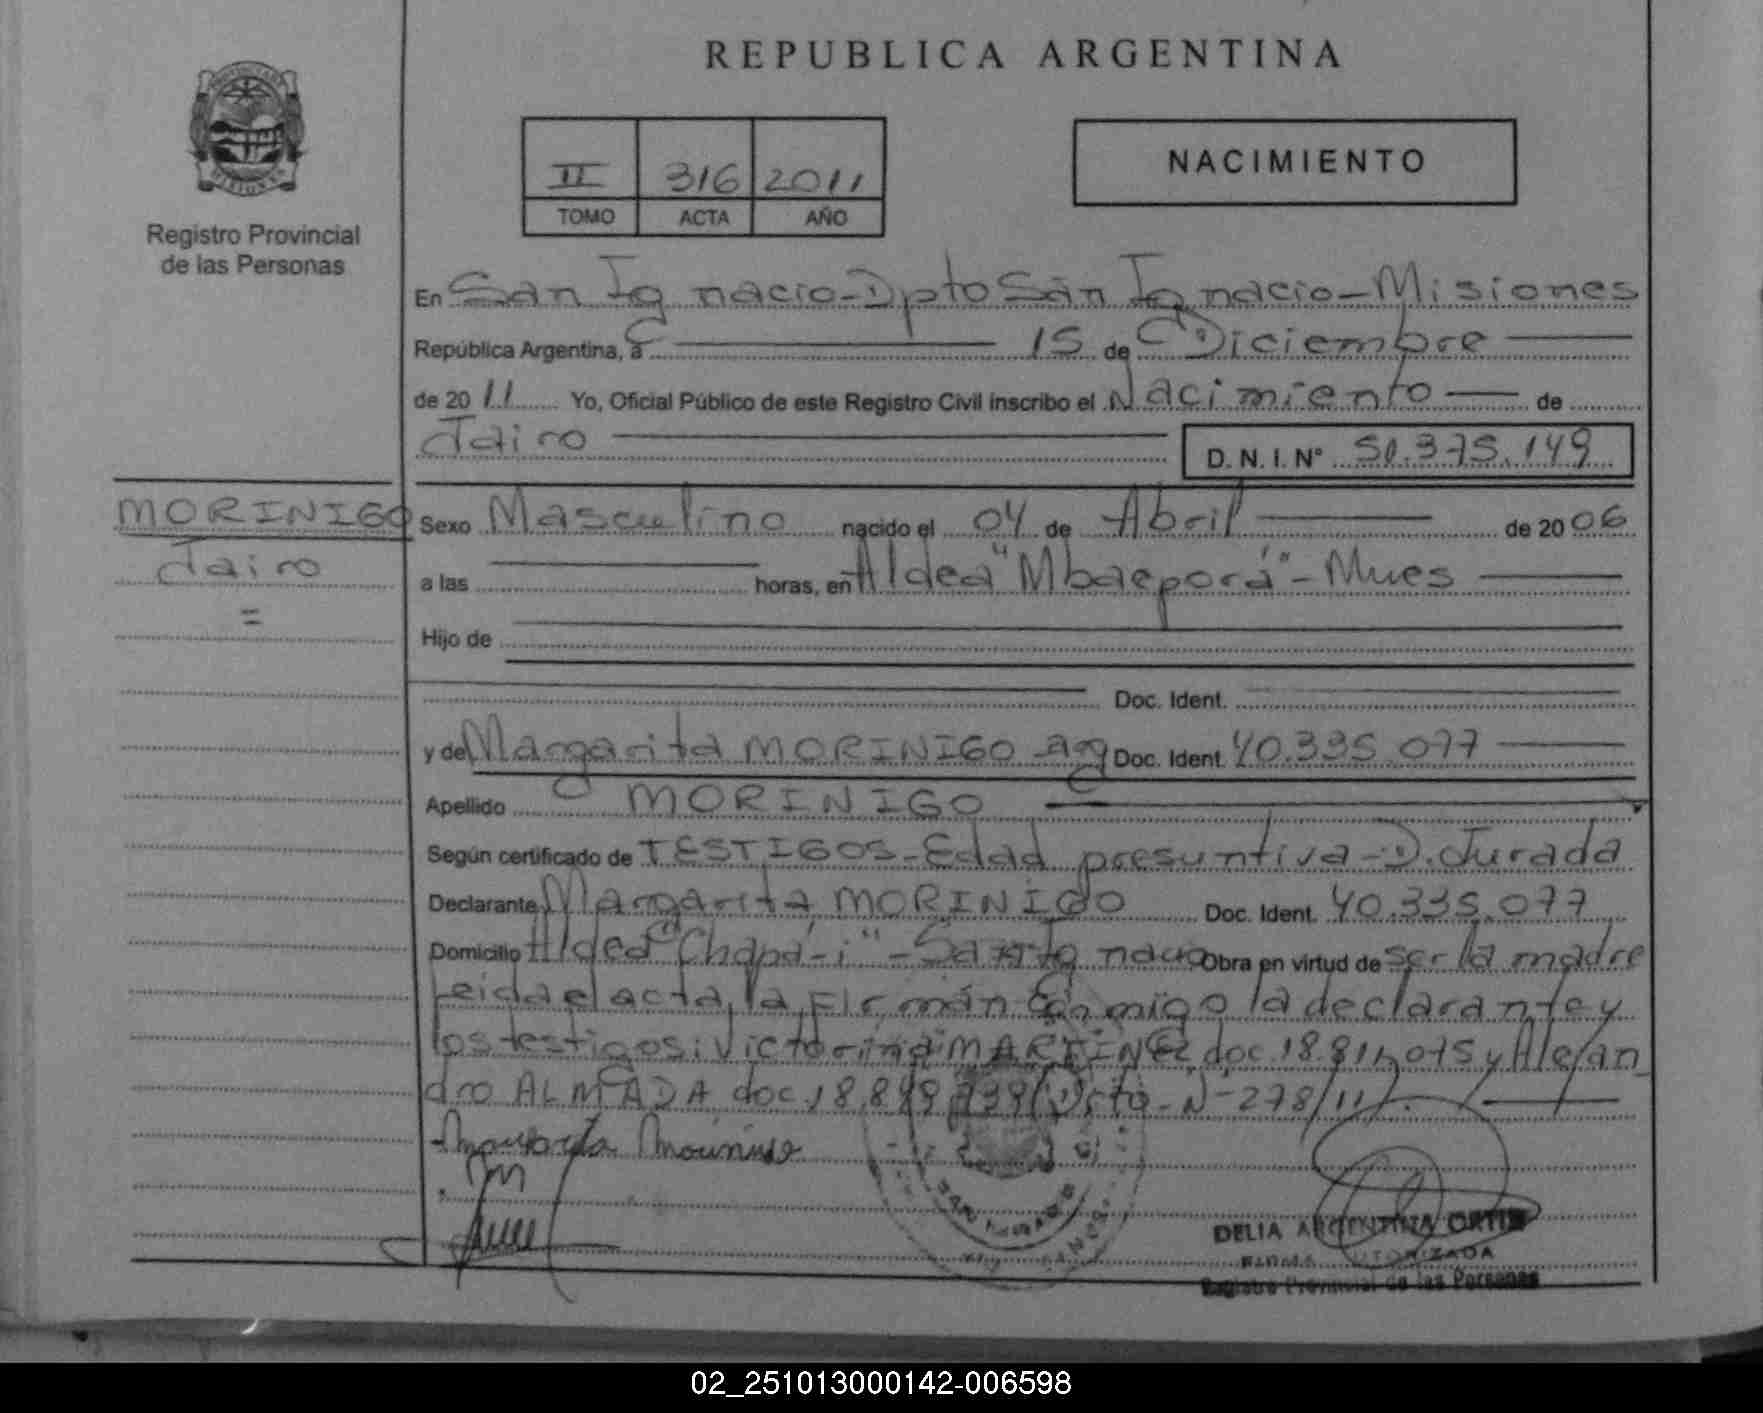 REPUBLICA ARGENTINA
Registro Provincial
de las Personas
II 316 2011
TOMO ACTA AÑO
NACIMIENTO
En San Ignacio-Dpto San Ignacio-Misiones
República Argentina, a 15 de Diciembre
de 20 11 Yo, Oficial Público de este Registro Civil inscribo el Nacimiento de
Jairo
D. N. I. N° 50.375.149
MORINIGO
Jairo
=
Sexo Masculino nacido el 04 de Abril de 20 06
a las horas, en Aldea "Mbaeporá"-Mnes
Hijo de
Doc. Ident.
y de Margarita MORINIGO arg Doc. Ident. 40.335.077
Apellido MORINIGO
Según certificado de TESTIGOS-Edad presuntiva-D.Jurada
Declarante Margarita MORINIGO Doc. Ident. 40.335.077
Domicilio Aldea "Chapá-i"-San Ignacio Obra en virtud de ser la madre
Leida el acta, la Firmán Conmigo la declarante y
los testigos: Victorina MARTINEZ doc.18. y Alejan
dro ALMADA doc. Dcto-N-278/11/.
DELIA ARGENTINA ORTIZ
FIRMA AUTORIZADA
Registro Provincial de las Personas
02_251013000142-006598